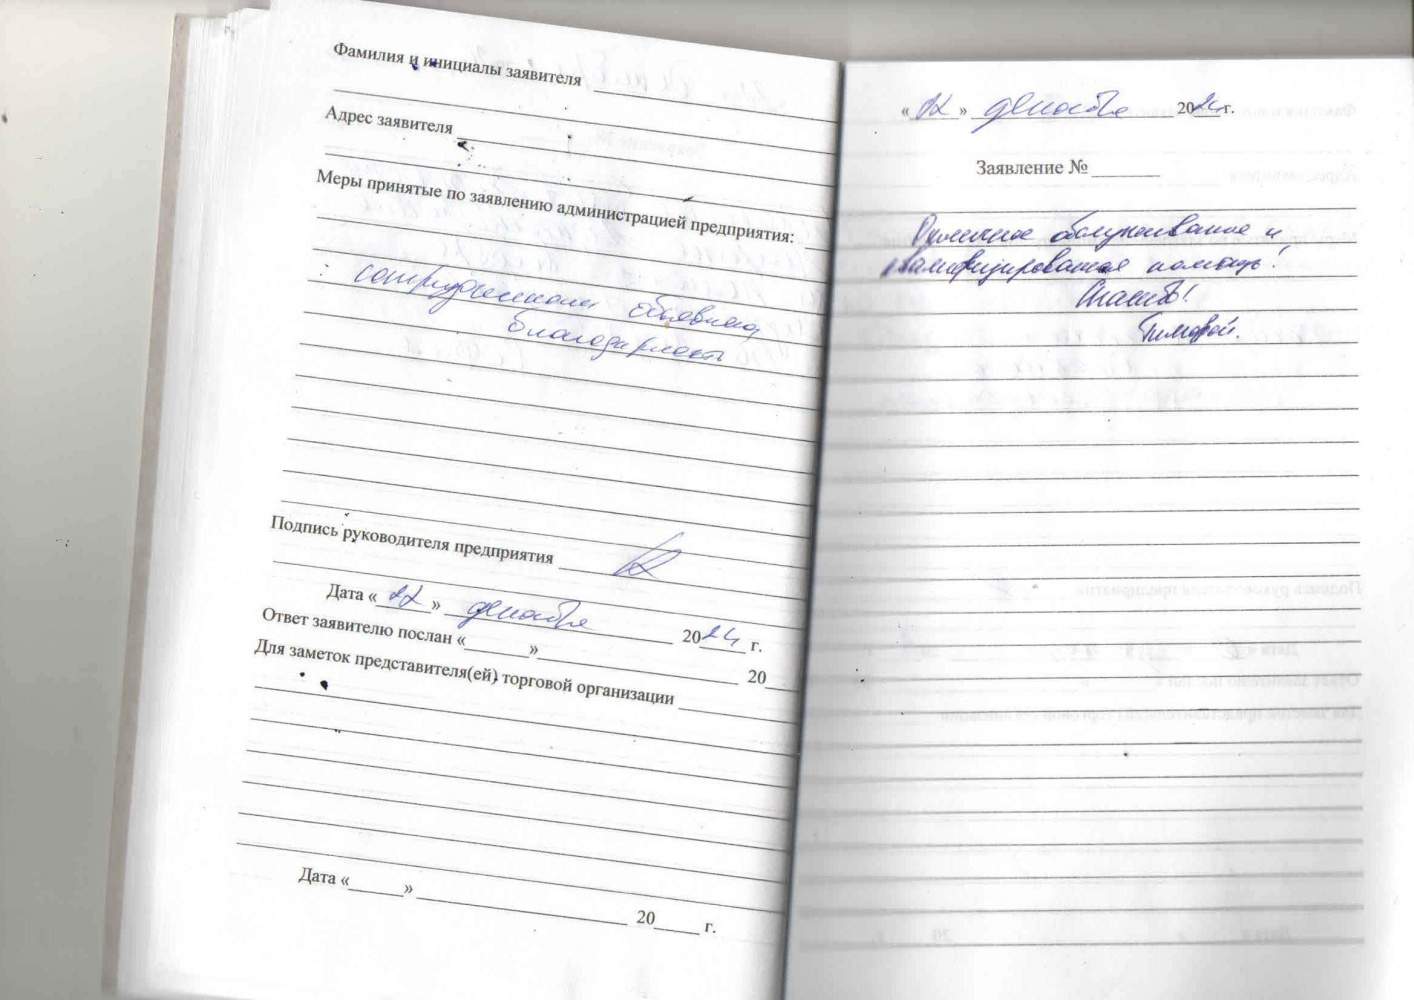 Фамилия и инициалы заявителя
Адрес заявителя
Меры принятые по заявлению администрацией предприятия:
сотрудникам объявлена
благодарность
Подпись руководителя предприятия
Дата « 22 » декабря 2024 г.
Ответ заявителю послан «______»____________ 20__
Для заметок представителя(ей) торговой организации
Дата «______»____________ 20____ г.
« » декабря 2024 г.
Заявление № ______
Отличное обслуживание и
квалифицированная помощь!
Спасибо!